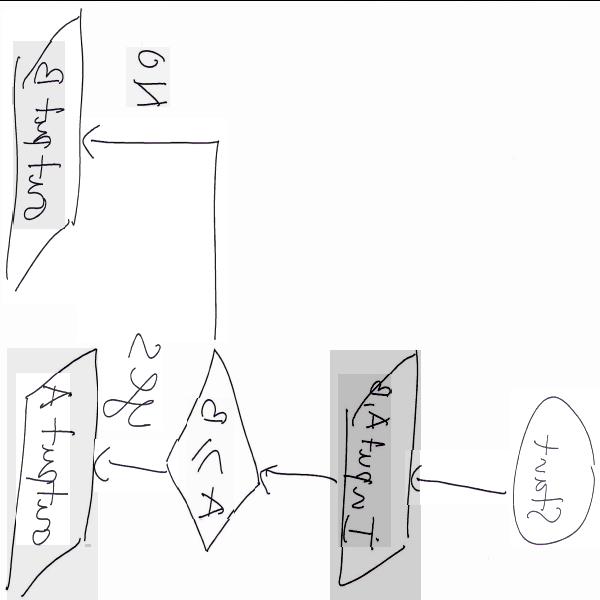 Start
Input A,B
A ≤ B
Yes
No
Output A
Output B